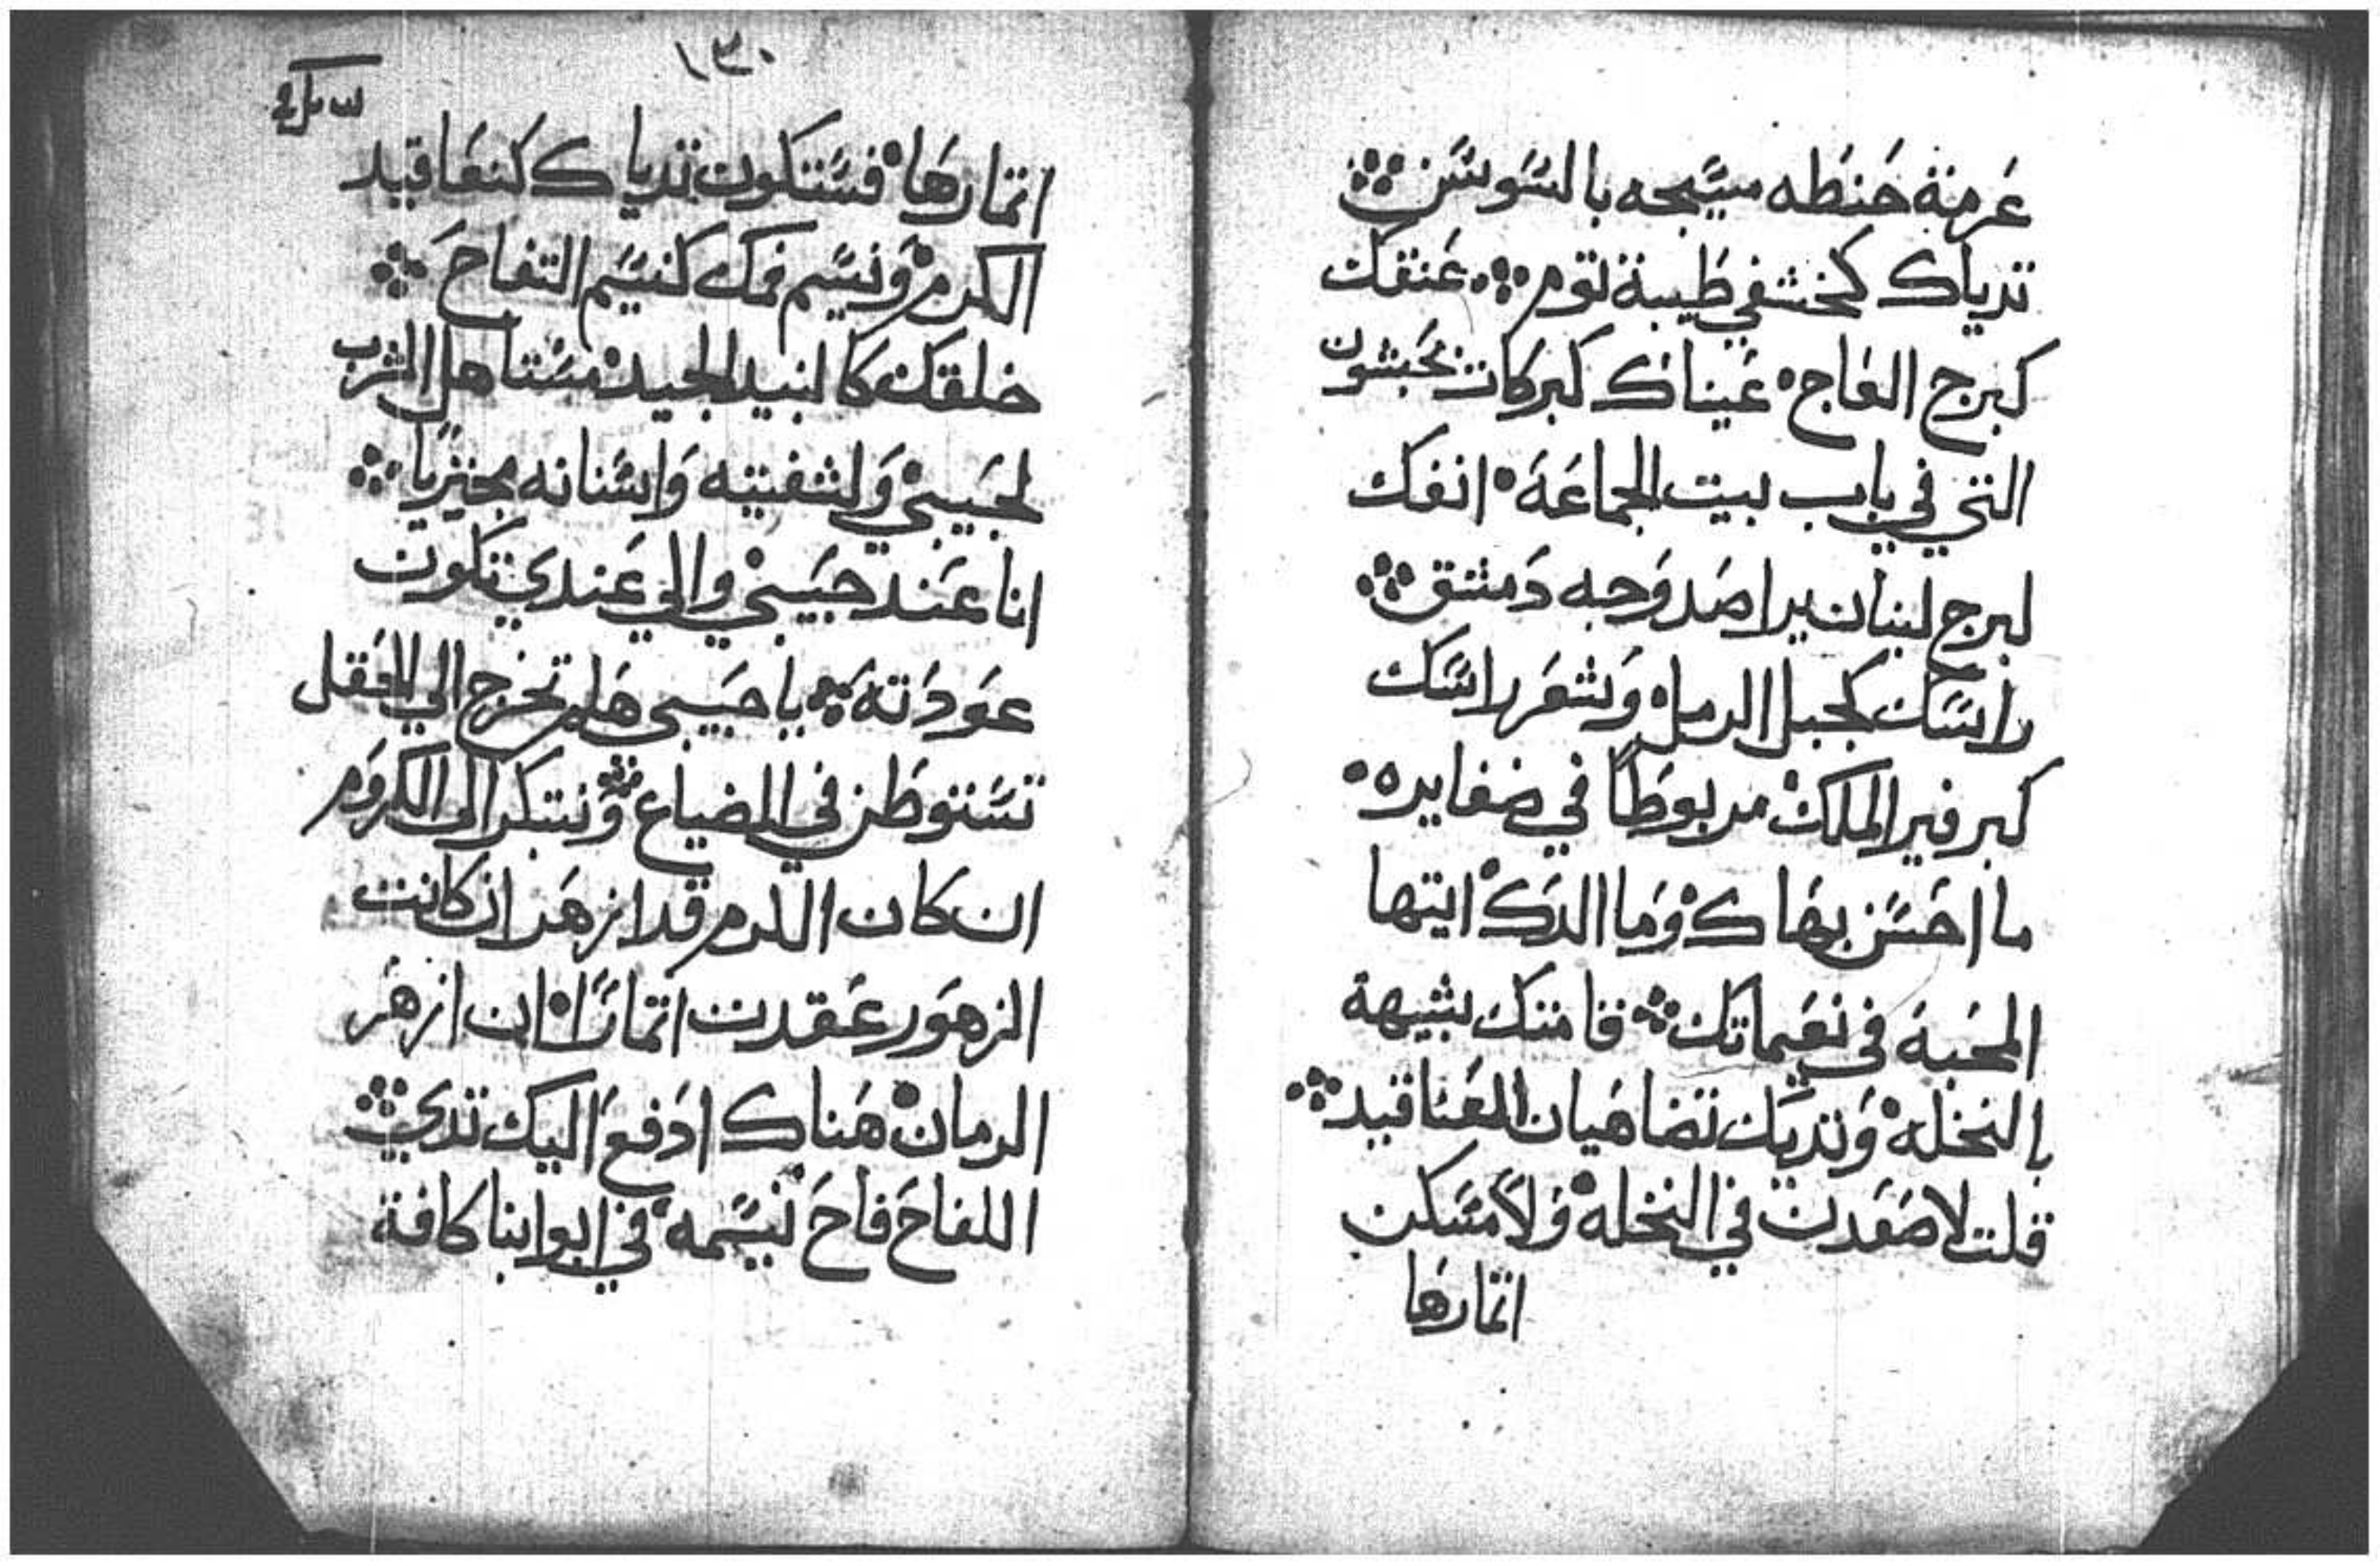 عرمة حنطه مسيجه بالسوسن
تدياك كخشفي طيبة توم عنقك
كبرج العاج عيناك كبركات بحبشون
التي في باب بيت الجماعة انفك
لبرج لبنان يراصد وجه دمشق
راسك كجبل الرمل وشعر راسك
كبرفير الملك مربوطا في ضفايره
ما احسن بهاك وما الدك ايتها
المحبة في نعيماتك قامتك شبيهة
بالنخله وتدييك تضاهيان العناقيد
قلت لاصعدت في النخله ولامسكن
اتمارها
١٣٠
اتمارها فستكون تدياك كعناقيد
الكرم ونسيم فمك كنسيم التفاح
حلقك كالنبيد الجيد مستاهل الشرب
لحبيبي ولشفتيه واسنانه بحيزيا
انا عند حبيبي والي عندي تكون
عودته يا حبيبي هلم تخرج الي الحقل
تستوطن في الضياع ونبتكر الى الكروم
ان كان الكرم قد ازهر ان كانت
الزهور عقدت اتمارا ان ازهر
الرمان هناك ادفع اليك تديي
اللفاح فاح نسيمه في ابوابنا كافة